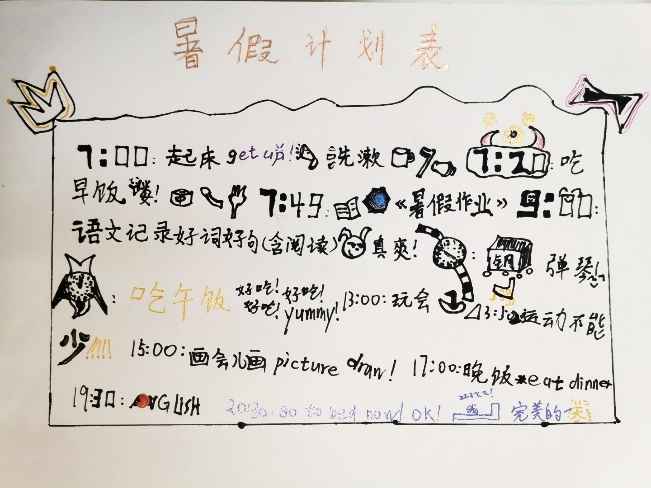 暑假计划表
7:00: 起床 get up! 洗漱 7:20: 吃
早饭喽! 7:49: 《暑假作业》 9:00:
语文记录好词好句(含阅读) 真爽! : 弹琴
: 吃午饭 好吃! 好吃! 好吃! yummy! 13:00: 玩会 13:50 运动不能
少!!!!
15:00: 画会儿画 picture draw! 17:00: 晚饭 eat dinner
19:30: ENGLISH 20:30: go to bed now! OK! zzzzz! 完美的一天